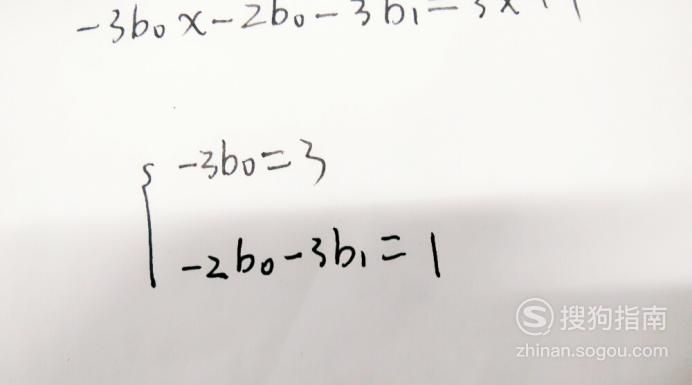 -3b₀x-2b₀-3b₁=3x+1
-3b₀=3
-2b₀-3b₁=1
搜狗指南
zhinan.sogou.com